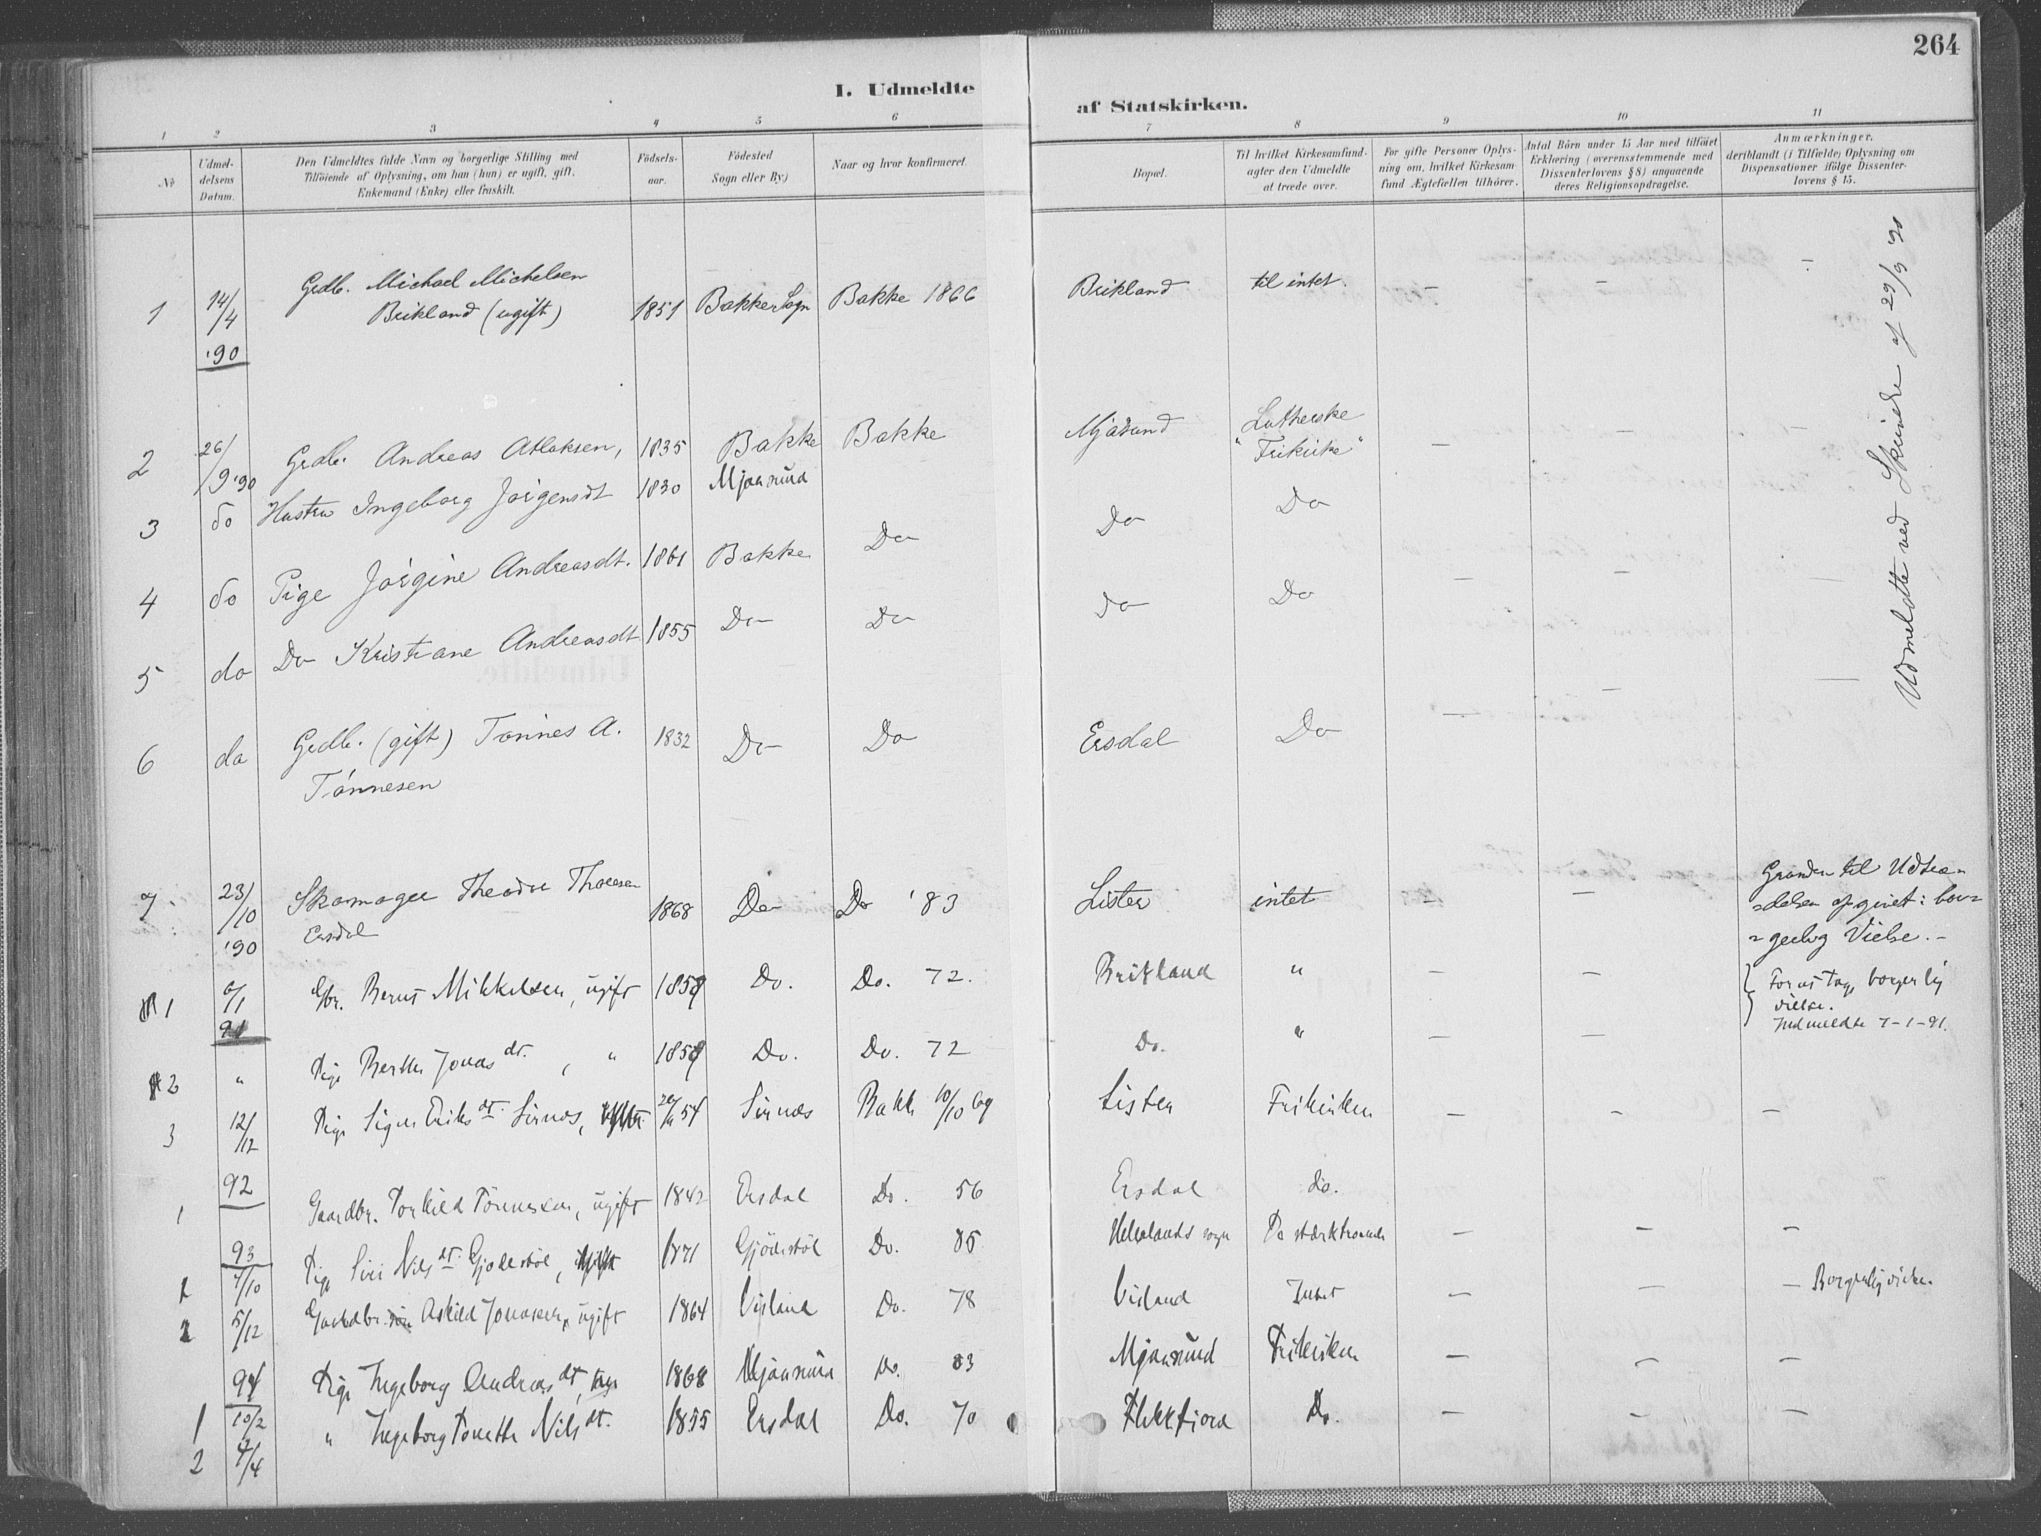 264
I. Udmeldte af Statskirken.
1 2 3 4 5 6 7 8 9 10 11
№
Udmel-
delsens
Datum.
Den Udmeldtes fulde Navn og borgerlige Stilling med
Tilføiende af Oplysning, om han (hun) er ugift, gift,
Enkemand (Enke) eller fraskilt.
Fødsels-
aar.
Fødested
Sogn eller By)
Naar og hvor konfirmeret
Bopæl.
Til hvilket Kirkesamfund-
agter den Udmeldte
at træde over.
For gifte Personer Oplys-
ning om, hvilket Kirkesam
fund Ægtefællen tilhører.
Antal Börn under 15 Aar med tilföiet
Erklæring (overensstemmende med
Dissenterlovens § 8) angaaende
deres Religionsopdragelse.
Anmærkninger.
deriblandt (i Tilfælde) Oplysning om
Dispensationer ifölge Dissenter-
lovens § 15.
1 14/4 '90 Grdb. Michael Michelsen
Birkland (ugift) 1851 Bakke Sogn Bakke 1866 Birkland til intet. - - -
2 26/9 '90 Grdb. Andreas Atlaksen, 1835 Bakke Bakke Mjåsund Lutherske
"Frikirke" - - -
3 do Hustru Ingeborg Jörgensdt 1830 Mjaasund Do Do Do
4 do Pige Jörgine Andreasdt. 1861 Bakke Do Do Do - - -
5 do Do Kristiane Andreasdt 1855 Do Do
6 do Grdb. (gift) Tønnes A.
Tønnesen 1832 Do Do Ersdal Do - - -
Udmeldte ved Skrivelse af 29/9 '90
7. 23/10 '90 Skomager Theodor Thorsen
Ersdal 1868 Do Do '83 Lister intet - -
Grunden til Udtræ-
-delsen opgivet: bor-
-gerlig Vielse. -
1 91 Gbr. Bernt Mikkelsen, ugift 1859 Do. Do. 72. Birkland " - -
For at tage borgerlig
vielse.
Indmeldte 7-1-91.
2 " Pige Berthe Jonasdt. , " 1859 Do. Do. 72 Do. " - -
3 12/12 Pige Signe Eriksdt. Sirnæs, 54 Sirnæs Bakk 10/10 69 Lister Frikirken - - -
92
1 Gaardbr. Torkild Tønnesen, ugift 1842 Ersdal Do. 56 Ersdal do.
93
1 7/10 Pige Siri Nilsdt. Gjødestøl, 1871 Gjødestöl Do. 85 Hellelands sogn De stærktroende - - -
2 5/12 Gaardbr. Askild Jonassen, ugift 1864 Visland Do. 78 Visland Intet - - - Borgerlig vielse.
94
1 10/2 Pige Ingeborg Andreasdt, 1868 Mjaasund Do. 83 Mjaasund Frikirken - - -
2 4/4 " Ingeborg Tonette Nilsdt. 1855 Ersdal Do. 70 Flekkfjord Do. - - -